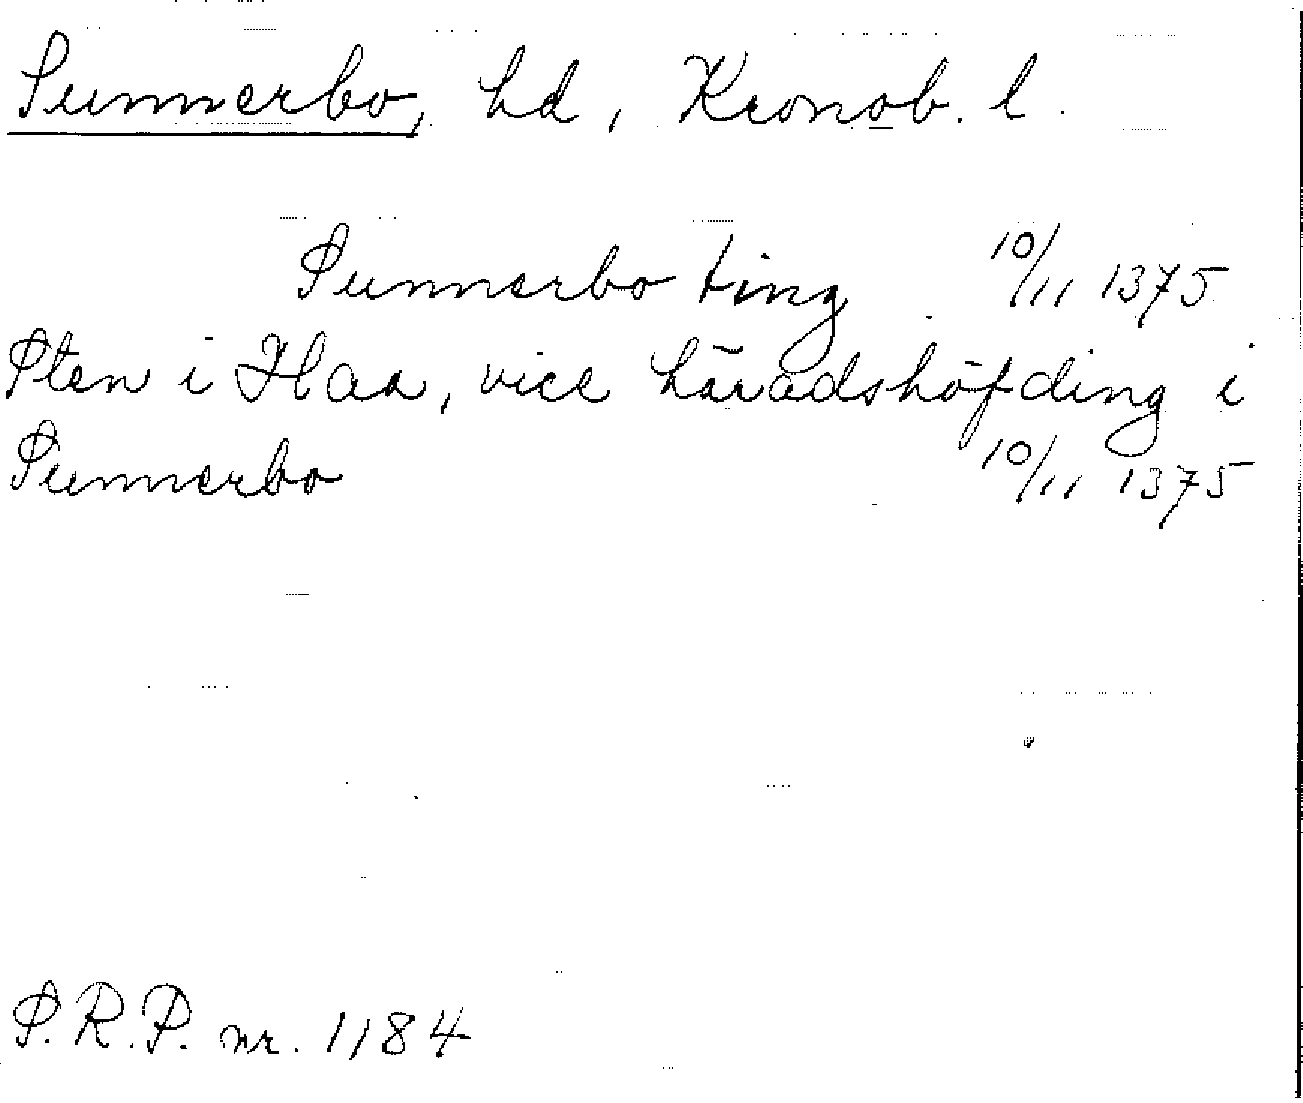 Sunnerbo, hd, Kronob. l.
Sunnerbo ting 10/11 1375
Sten i Haa, vice häradshöfding i
Sunnerbo 10/11 1375
S.R.P. nr. 1184